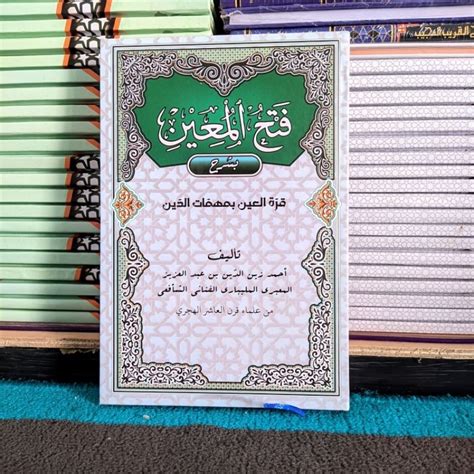 فَتْحُ الْمُعِيْن
بشرح
قرة العين بمهمات الدين
تأليف
أحمد زين الدين بن عبد العزيز
المعبري المليباري الفناني الشافعي
من علماء قرن العاشر الهجري